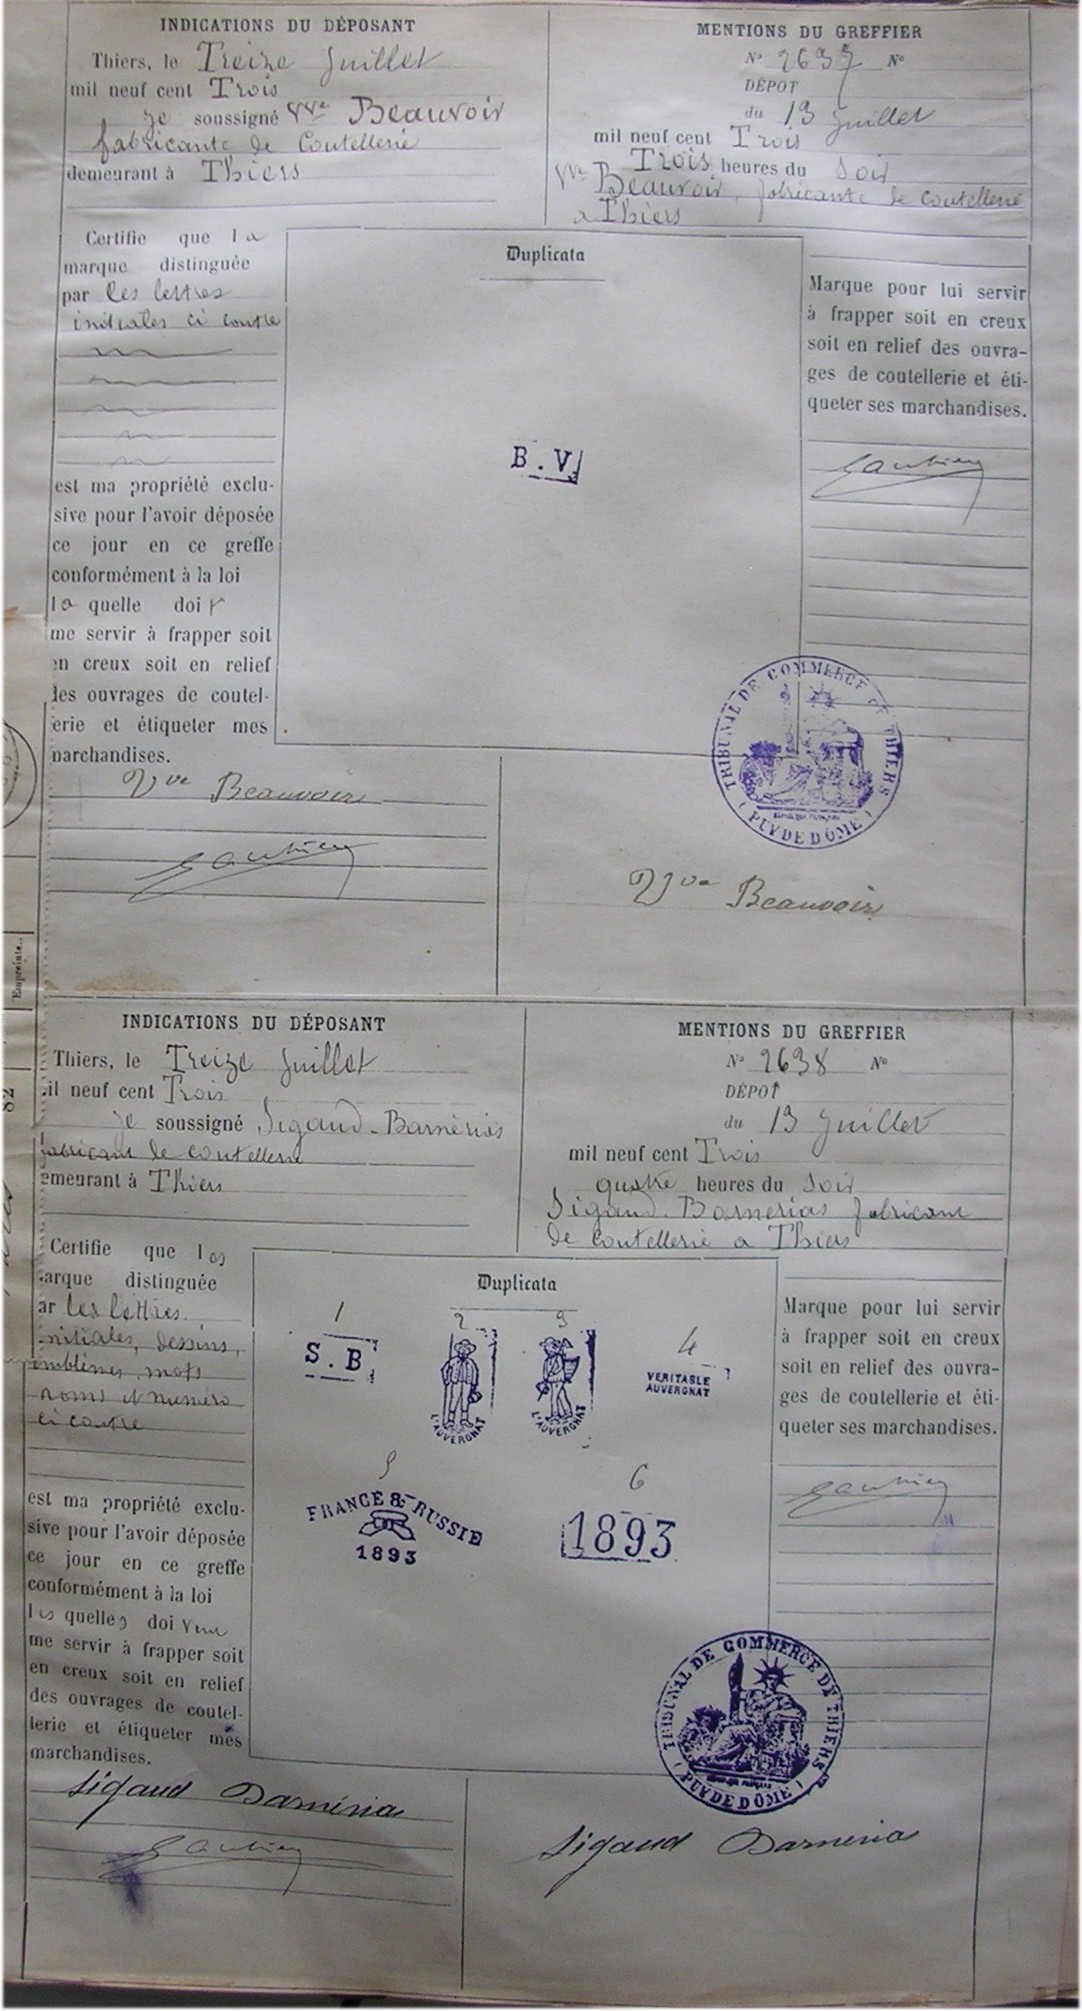 INDICATIONS DU DÉPOSANT
Thiers, le Treize Juillet
mil neuf cent Trois
je soussigné Vve Beauvoir
fabricante de Coutellerie
demeurant à Thiers
MENTIONS DU GREFFIER
N° 2637 N°
DÉPOT
du 13 Juillet
mil neuf cent Trois
Trois heures du Soir
Vve Beauvoir, fabricante de coutellerie
a Thiers
Certifie que la
marque distinguée
par les lettres
initiales ci contre
est ma propriété exclu-
sive pour l'avoir déposée
ce jour en ce greffe
conformément à la loi
la quelle doit
me servir à frapper soit
en creux soit en relief
des ouvrages de coutel-
erie et étiqueter mes
marchandises.
Vve Beauvoir
Duplicata
B.V
Marque pour lui servir
à frapper soit en creux
soit en relief des ouvra-
ges de coutellerie et éti-
queter ses marchandises.
TRIBUNAL DE COMMERCE DE THIERS
(PUY DE DÔME)
Vve Beauvoir
Empreinte..
82
INDICATIONS DU DÉPOSANT
Thiers, le Treize Juillet
il neuf cent Trois
je soussigné Sigaud-Barnérias
fabricant de coutellerie
emeurant à Thiers
MENTIONS DU GREFFIER
N° 2638 N°
DÉPOT
du 13 Juillet
mil neuf cent Trois
quatre heures du Soir
Sigaud-Barnerias fabricant
de coutellerie a Thiers
Certifie que les
arque distinguée
ar les lettres
initiales, dessins,
emblèmes, mots
noms et numéro
ci contre
est ma propriété exclu-
sive pour l'avoir déposée
ce jour en ce greffe
conformément à la loi
les quelles doivent
me servir à frapper soit
en creux soit en relief
des ouvrages de coutel-
lerie et étiqueter mes
marchandises.
Sigaud Barnéria
Duplicata
1
S.B
2
L'AUVERGNAT
3
L'AUVERGNAT
4
VERITABLE
AUVERGNAT
5
FRANCE & RUSSIE
1893
6
1893
Marque pour lui servir
à frapper soit en creux
soit en relief des ouvra-
ges de coutellerie et éti-
queter ses marchandises.
TRIBUNAL DE COMMERCE DE THIERS
(PUY DE DÔME)
Sigaud Barneria